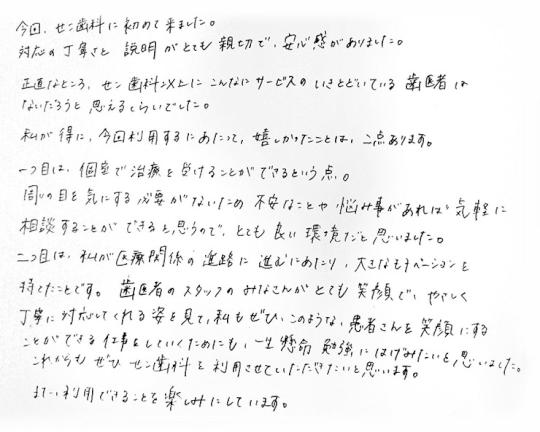 今回、セン歯科に初めて来ました。
対応の丁寧さと 説明がとても 親切で、安心感がありました。
正直なところ、セン歯科以上に こんなにサービスの いきとどいている 歯医者は
ないだろうと 思えるくらいでした。
私が得に、今回利用するにあたって、嬉しかったことは、二点あります。
一つ目は、個室で治療を受けることができるという点。
周りの目を気にする必要がないため 不安なことや 悩み事があれば 気軽に
相談することが できると思うので、とても良い 環境だと思いました。
二つ目は、私が医療関係の進路に 進むにあたり、大きなモチベーションを
持てたことです。 歯医者のスタッフのみなさんがとても 笑顔で、やさしく
丁寧に対応してくれる姿を見て、私もぜひ、このような、患者さんを笑顔にする
ことができる 仕事をしていくためにも、一生懸命 勉強にはげみたいと思いました。
これからも ぜひ セン歯科を 利用させていただきたいと思います。
また、利用できることを楽しみにしています。